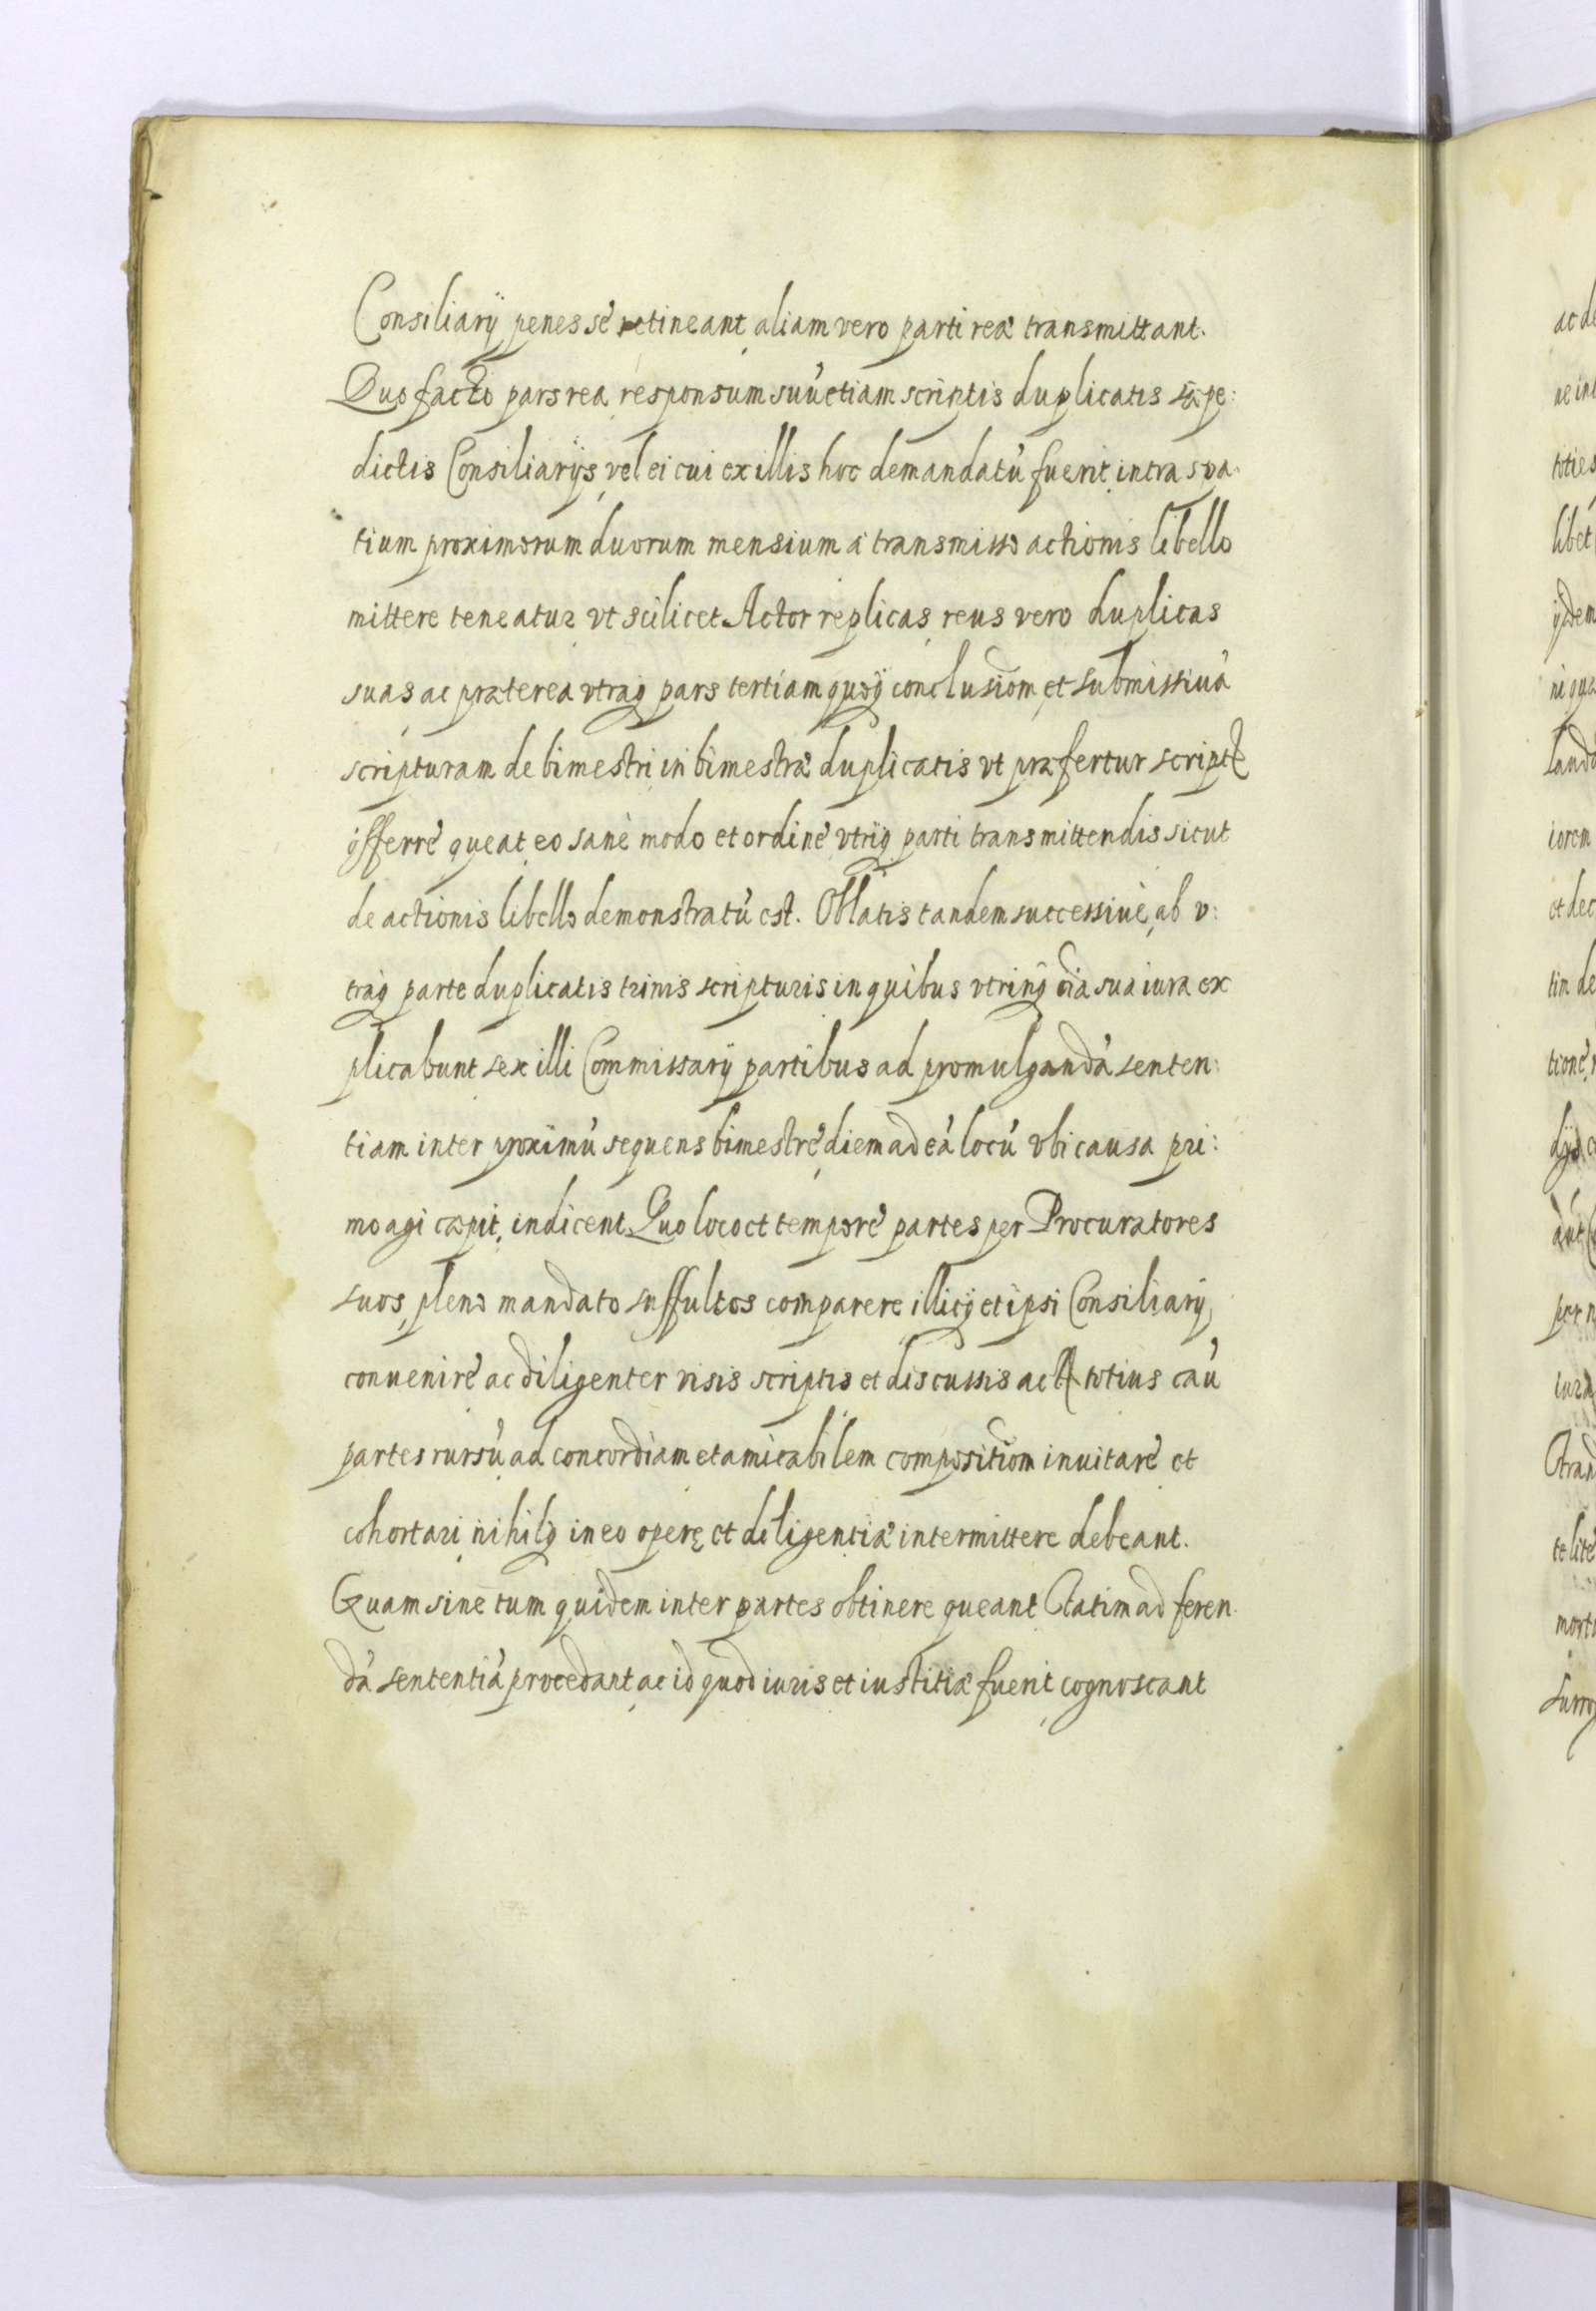 Consiliarÿ penes sé retineant, aliam vero parti reæ transmittant.
Quo facto pars rea responsum suú etiam scriptis duplicatis sæpe:
dictis Consiliarÿs, vel ei cui ex illis hoc demandatú fuerit, intra spa:
tium proximorum duorum mensium á transmisso actionis libello
mittere teneatur vt scilicet Actor replicas, reus vero duplicas
suas ac præterea vtraq pars tertiam quoq conclusiom, et submissiuá
scripturam de bimestri in bimestræ duplicatis vt præfertur script
offerré queat, eo sanè modo et ordiné vtriq parti transmittendis sicut
de actionis libello demonstratú est. Oblatis tandem successiuè, ab v:
traq parte duplicatis trinis scripturis in quibus vtrinq oiá sua iura ex
plicabunt sex illi Commissarÿ partibus ad promulgandá senten:
tiam inter proximú sequens bimestré, diem ad eá locú vbi causa pri:
mo agi cæpit, indicent. Quo loco et temporé partes per Procuratores
suos, pleno mandato suffultos comparere illicq et ipsi Consiliarÿ,
conueniré ac diligenter visis scriptis et discussis act totius caú
partes rursú ad concordiam et amicabilem compositiom inuitaré et
cohortari, nihilq in eo operę et diligentiæ intermittere debeant.
Quam sine tum quidem inter partes obtinere queant Statim ad feren
dá sententiá procedant ac id quod iuris et iustitiæ fuerit cognoscant